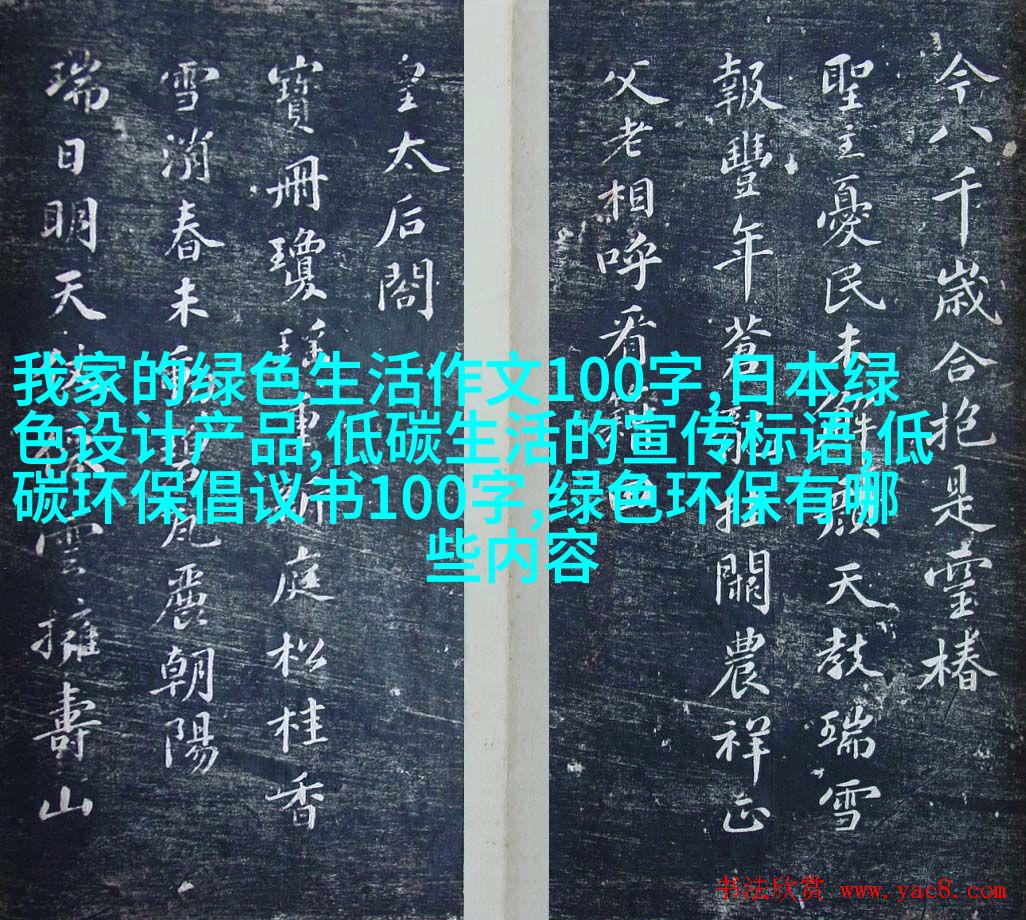 今八千歲合抱是靈椿
聖主憂民未解顏天教瑞雪
報豐年蒼龍挂闕農祥正
父老相呼看
皇太后閣
寶冊瓊瑤庭松桂香
雪消春未瓦麗朝陽
瑞日明天雲擁壽山
我家的绿色生活作文100字,日本绿
色设计产品,低碳生活的宣传标语,低
碳环保倡议书100字,绿色环保有哪
些内容
书法欣赏 www.yac8.com